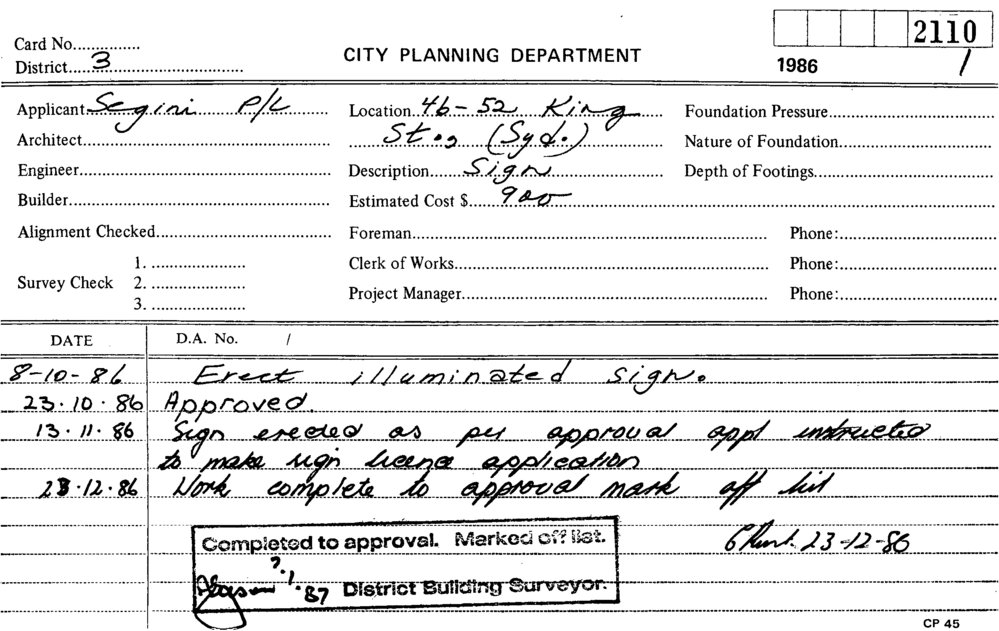 Card No...............
2110
District....3....
CITY PLANNING DEPARTMENT
1986 /
Applicant Segini P/L
Location 46-52 King
Foundation Pressure
Architect
St., (Syd.)
Nature of Foundation
Engineer
Description Sign
Depth of Footings
Builder
Estimated Cost $ 900
Alignment Checked
Foreman
Phone:
Survey Check
1.
2.
3.
Clerk of Works
Phone:
Project Manager
Phone:
DATE
D.A. No. /
8-10-86 Erect illuminated sign.
23.10.86 Approved.
13.11.86 Sign erected as per approval appl instructed
to make sign licence application
23.12.86 Work complete to approval mark off list
23-12-86
Completed to approval. Marked off list.
.1.87 District Building Surveyor.
CP 45